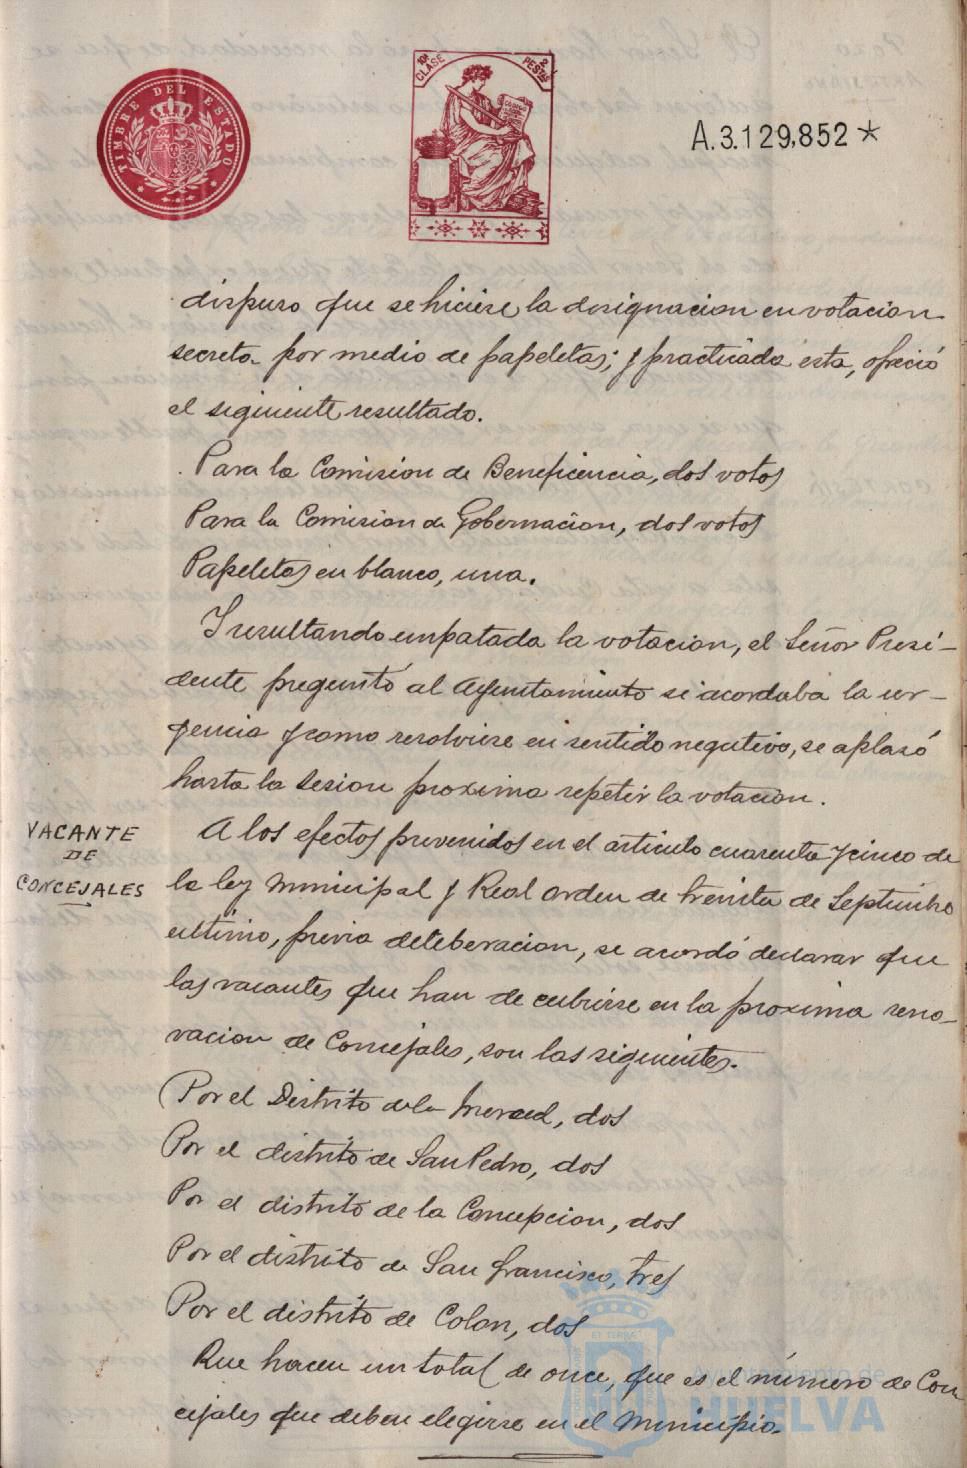 TIMBRE DEL ESTADO
10ª CLASE 2 PESTAS
A.3.129,852*
dispuso que se hiciese la designacion en votacion
secreta por medio de papeletas; y practicada esta, ofreció
el siguiente resultado.
Para la Comision de Beneficencia, dos votos
Para la Comision de Gobernacion, dos votos
Papeletas en blanco, una.
Y resultando empatada la votacion, el Señor Presi-
dente preguntó al Ayuntamiento si acordaba la ur-
gencia y como resolviese en sentido negativo, se aplazó
hasta la sesion proxima repetir la votacion.
VACANTE
DE
CONCEJALES
A los efectos prevenidos en el articulo cuarenta y cinco de
la ley Municipal y Real orden de treinta de Septiembre
ultimo, previa deliberacion, se acordó declarar que
las vacantes que han de cubrirse en la proxima reno-
vacion de Concejales, son las siguientes.
Por el Distrito de la Merced, dos
Por el distrito de San Pedro, dos
Por el distrito de la Concepcion, dos
Por el distrito de San Francisco, tres
Por el distrito de Colon, dos
Que hacen un total de once, que es el número de Con
cejales que deben elegirse en el Municipio.
Ayuntamiento de
HUELVA